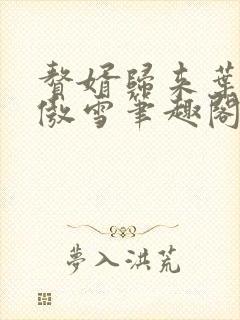 贅婿歸来葉
傲雪筆趣閣
夢入洪荒